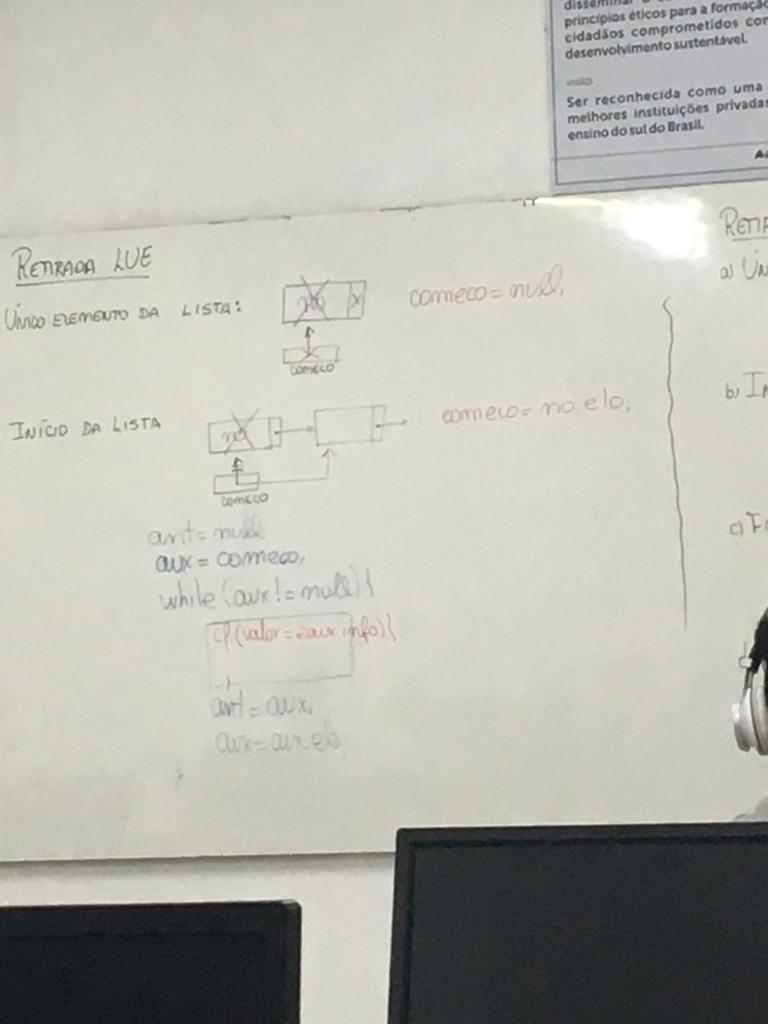 princípios éticos para a formação
cidadãos comprometidos com
desenvolvimento sustentável.
visão
Ser reconhecida como uma
melhores instituições privadas
ensino do sul do Brasil.
RETIRADA LUE
ÚNICO ELEMENTO DA LISTA:
no
começo = null;
COMEÇO
INÍCIO DA LISTA
no
começo = no.elo;
COMEÇO
ant = null
aux = começo;
while (aux != null) {
if (valor == aux.info) {
}
ant = aux;
aux = aux.elo;
a)
b)
c)